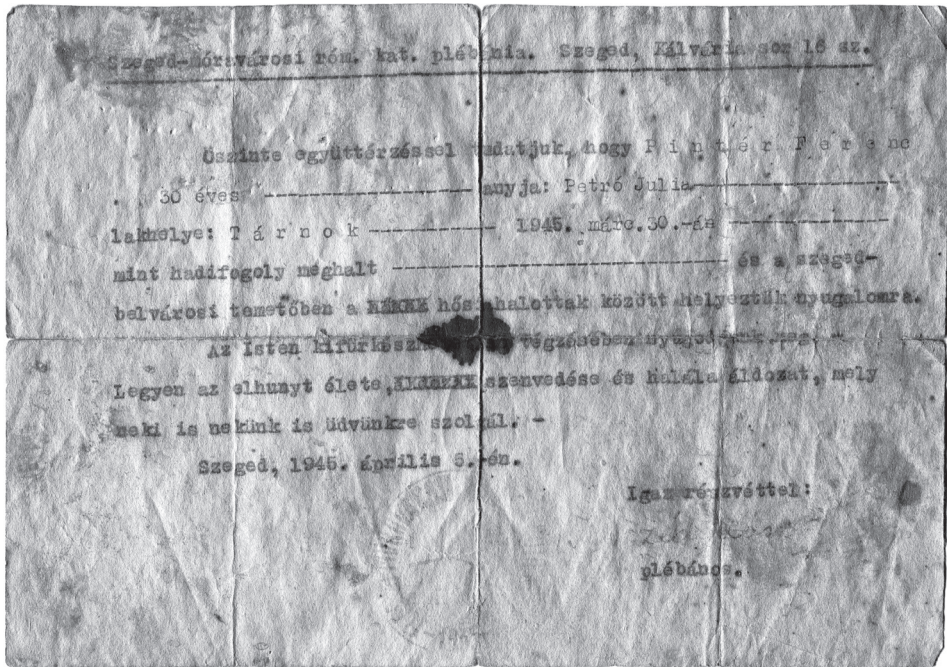 Szeged-Móravárosi róm. kat. plébánia. Szeged, Kálvária sor 16 sz.
Őszinte együttérzéssel tudatjuk, hogy P i n t é r F e r e n c
30 éves -------------------- anyja: Petró Julia--------------------
lakhelye: T á r n o k ------------ 1945. márc.30.-án ---------------
mint hadifogoly meghalt -------------------------------- és a szeged-
belvárosi temetőben a hős halottak között helyeztük nyugalomra.
Az Isten végzésében
Legyen az elhunyt élete, szenvedése és halála áldozat, mely
neki is nekünk is üdvünkre szolgál. -
Szeged, 1945. április 5.-én.
Igaz részvéttel:
plébános.